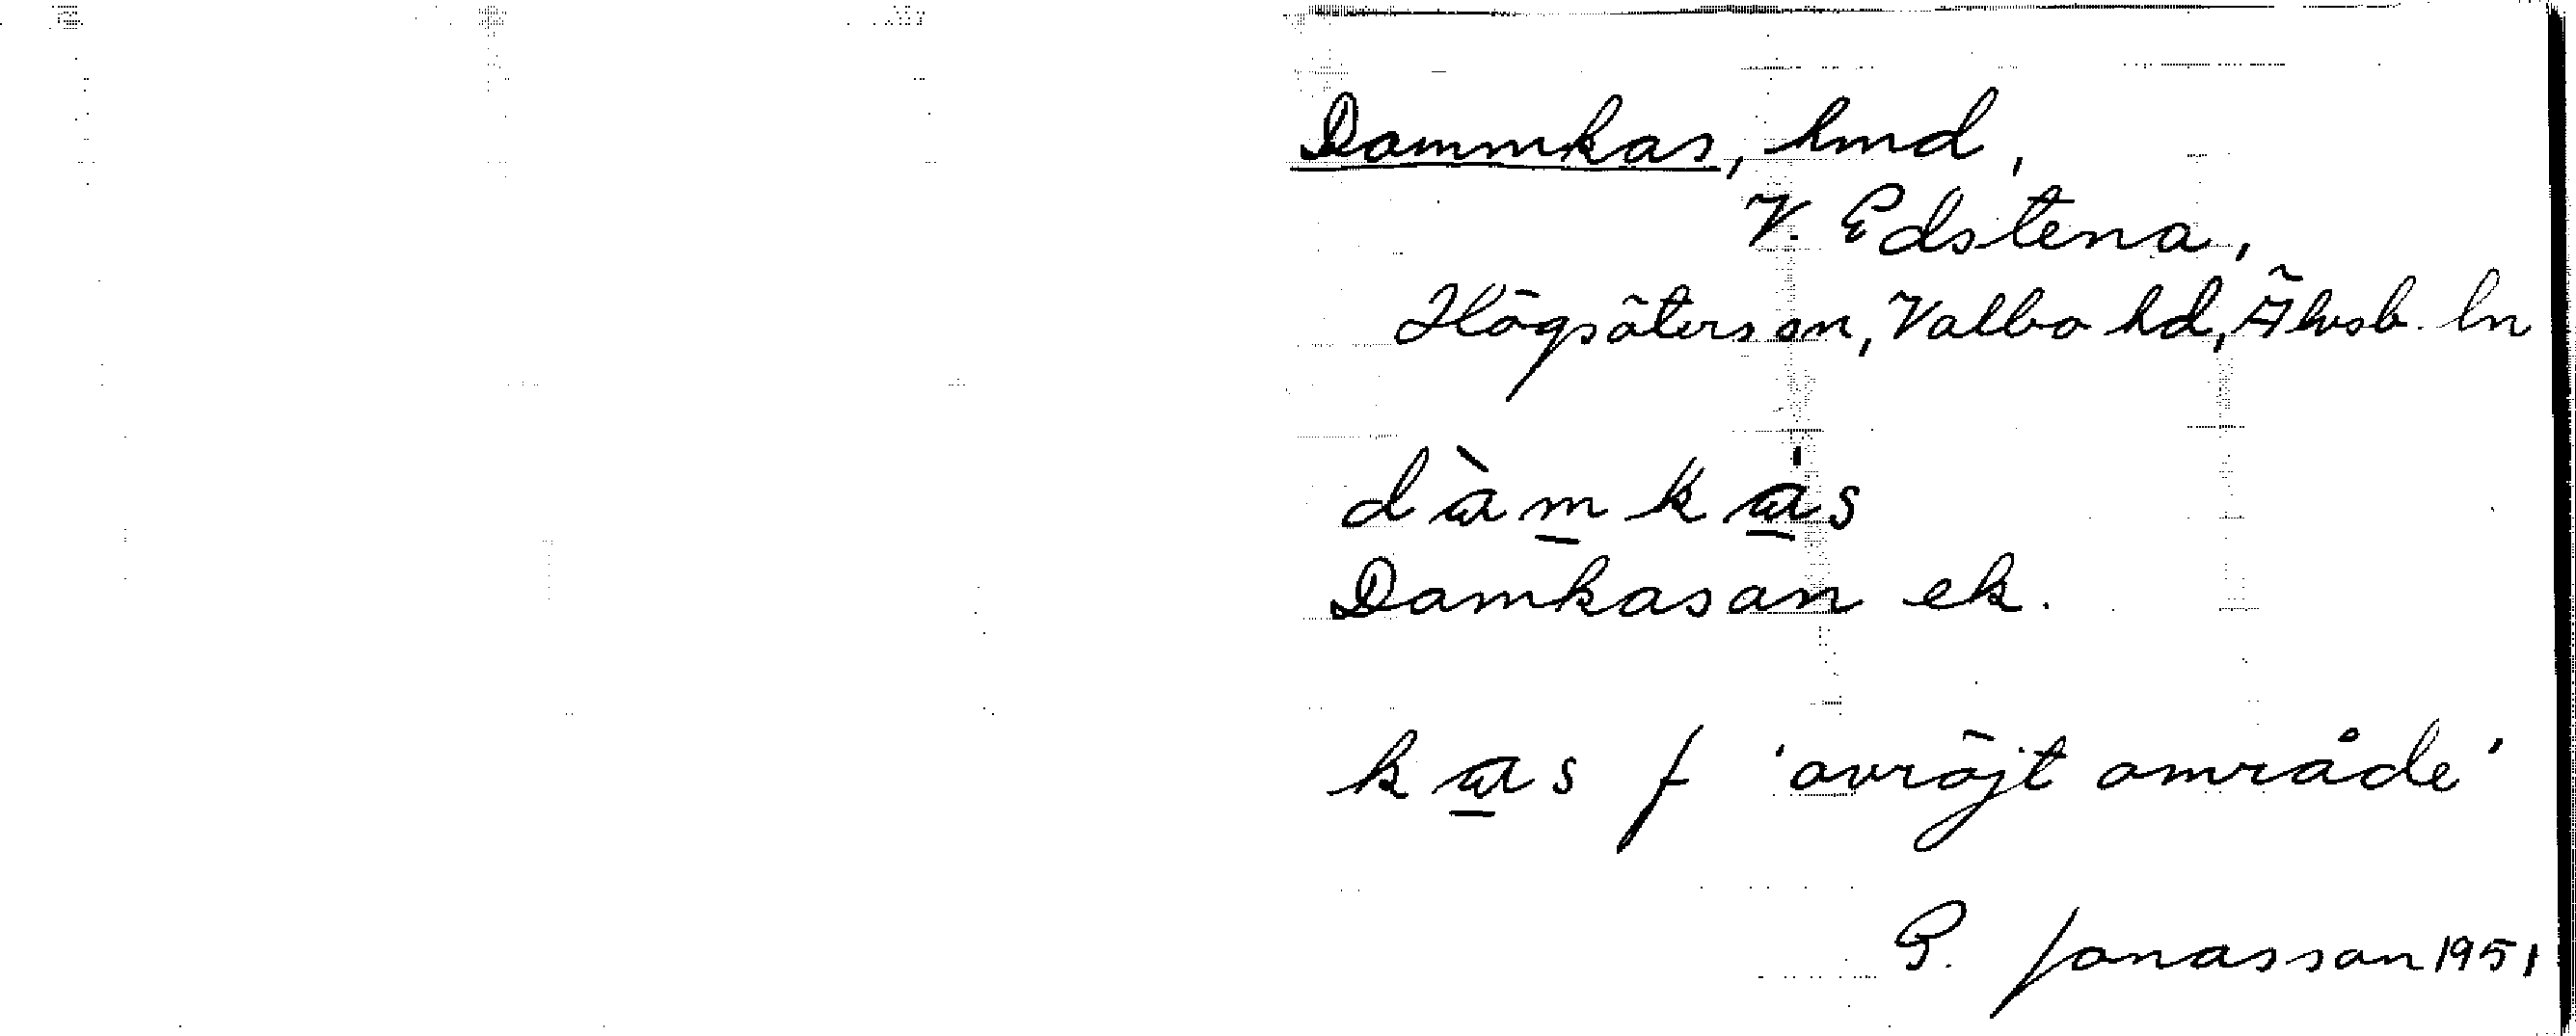 Dammkas, hmd,
V. Edstena,
Högsäters sn, Valbo hd, Älvsb. ln
dàmkas
Damkasan ek.
kas f 'avröjt område'
G. Jonasson 1951